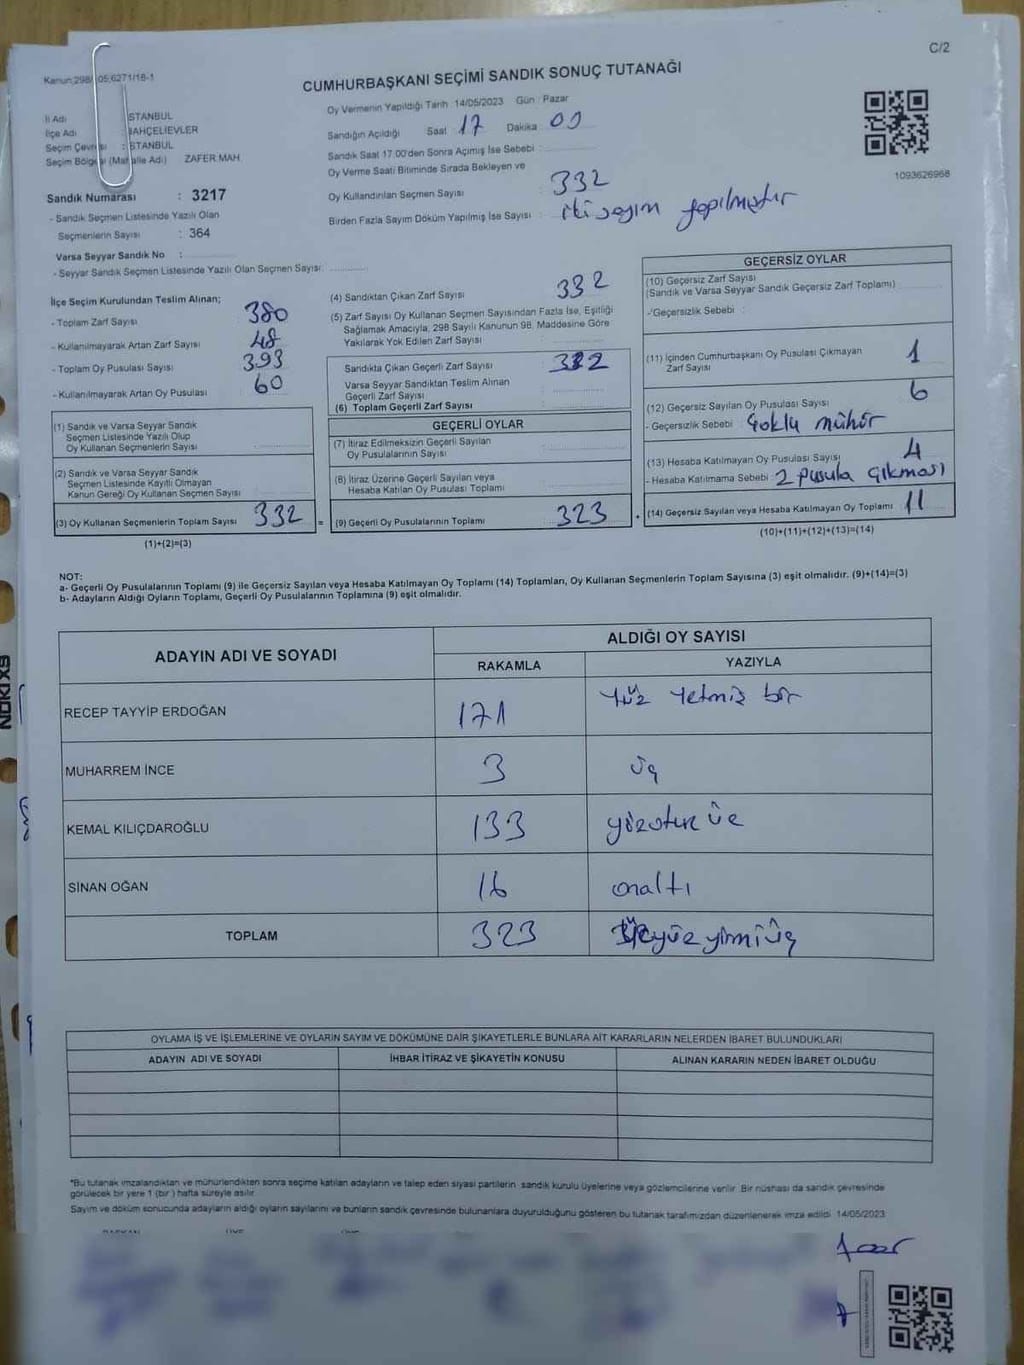 C/2
CUMHURBAŞKANI SEÇİMİ SANDIK SONUÇ TUTANAĞI
Oy Vermenin Yapıldığı Tarih :14/05/2023 Gün : Pazar
İl Adı : İSTANBUL
İlçe Adı : BAHÇELİEVLER
Seçim Çevresi : İSTANBUL
Seçim Bölgesi (Mahalle Adı) ZAFER MAH
Sandığın Açıldığı Saat 17 Dakika 00
Sandık Saat 17.00'den Sonra Açımış İse Sebebi :
Oy Verme Saati Bitiminde Sırada Bekleyen ve
Oy Kullandırılan Seçmen Sayısı : 332
Birden Fazla Sayım Döküm Yapılmış İse Sayısı : iki sayım yapılmıştır
1093626968
Sandık Numarası : 3217
- Sandık Seçmen Listesinde Yazılı Olan
Seçmenlerin Sayısı : 364
Varsa Seyyar Sandık No :
- Seyyar Sandık Seçmen Listesinde Yazılı Olan Seçmen Sayısı:
İlçe Seçim Kurulundan Teslim Alınan;
- Toplam Zarf Sayısı 380
- Kullanılmayarak Artan Zarf Sayısı 48
- Toplam Oy Pusulası Sayısı 393
- Kullanılmayarak Artan Oy Pusulası 60
(1) Sandık ve Varsa Seyyar Sandık
Seçmen Listesinde Yazılı Olup
Oy Kullanan Seçmenlerin Sayısı
(2) Sandık ve Varsa Seyyar Sandık
Seçmen Listesinde Kayıtlı Olmayan
Kanun Gereği Oy Kullanan Seçmen Sayısı
(3) Oy Kullanan Seçmenlerin Toplam Sayısı 332
(1)+(2)=(3)
(4) Sandıktan Çıkan Zarf Sayısı 332
(5) Zarf Sayısı Oy Kullanan Seçmen Sayısından Fazla İse, Eşitliği
Sağlamak Amacıyla, 298 Sayılı Kanunun 98. Maddesine Göre
Yakılarak Yok Edilen Zarf Sayısı :
Sandıkta Çıkan Geçerli Zarf Sayısı 332
Varsa Seyyar Sandıktan Teslim Alınan
Geçerli Zarf Sayısı
(6) Toplam Geçerli Zarf Sayısı
GEÇERLİ OYLAR
(7) İtiraz Edilmeksizin Geçerli Sayılan
Oy Pusulalarının Sayısı
(8) İtiraz Üzerine Geçerli Sayılan veya
Hesaba Katılan Oy Pusulası Toplamı
= (9) Geçerli Oy Pusulalarının Toplamı 323
GEÇERSİZ OYLAR
(10) Geçersiz Zarf Sayısı
(Sandık ve Varsa Seyyar Sandık Geçersiz Zarf Toplamı)
- Geçersizlik Sebebi :
(11) İçinden Cumhurbaşkanı Oy Pusulası Çıkmayan
Zarf Sayısı 1
(12) Geçersiz Sayılan Oy Pusulası Sayısı 6
- Geçersizlik Sebebi Çoklu mühür
(13) Hesaba Katılmayan Oy Pusulası Sayısı 4
- Hesaba Katılmama Sebebi : 2 pusula çıkması
(14) Geçersiz Sayılan veya Hesaba Katılmayan Oy Toplamı 11
(10)+(11)+(12)+(13)=(14)
NOT:
a- Geçerli Oy Pusulalarının Toplamı (9) ile Geçersiz Sayılan veya Hesaba Katılmayan Oy Toplamı (14) Toplamları, Oy Kullanan Seçmenlerin Toplam Sayısına (3) eşit olmalıdır. (9)+(14)=(3)
b- Adayların Aldığı Oyların Toplamı, Geçerli Oy Pusulalarının Toplamına (9) eşit olmalıdır.
ADAYIN ADI VE SOYADI ALDIĞI OY SAYISI
RAKAMLA YAZIYLA
RECEP TAYYİP ERDOĞAN 171 yüz yetmiş bir
MUHARREM İNCE 3 üç
KEMAL KILIÇDAROĞLU 133 yüzotuz üç
SİNAN OĞAN 16 onaltı
TOPLAM 323 üçyüzyirmiüç
OYLAMA İŞ VE İŞLEMLERİNE VE OYLARIN SAYIM VE DÖKÜMÜNE DAİR ŞİKAYETLERLE BUNLARA AİT KARARLARIN NELERDEN İBARET BULUNDUKLARI
ADAYIN ADI VE SOYADI İHBAR İTİRAZ VE ŞİKAYETİN KONUSU ALINAN KARARIN NEDEN İBARET OLDUĞU
*Bu tutanak imzalandıktan ve mühürlendikten sonra seçime katılan adayların ve talep eden siyasi partilerin sandık kurulu üyelerine veya gözlemcilerine verilir. Bir nüshası da sandık çevresinde
görülecek bir yere 1 (bir) hafta süreyle asılır
Sayım ve döküm sonucunda adayların aldığı oyların sayılarını ve bunların sandık çevresinde bulunanlara duyurulduğunu gösteren bu tutanak tarafımızdan düzenlenerek imza edildi. 14/05/2023